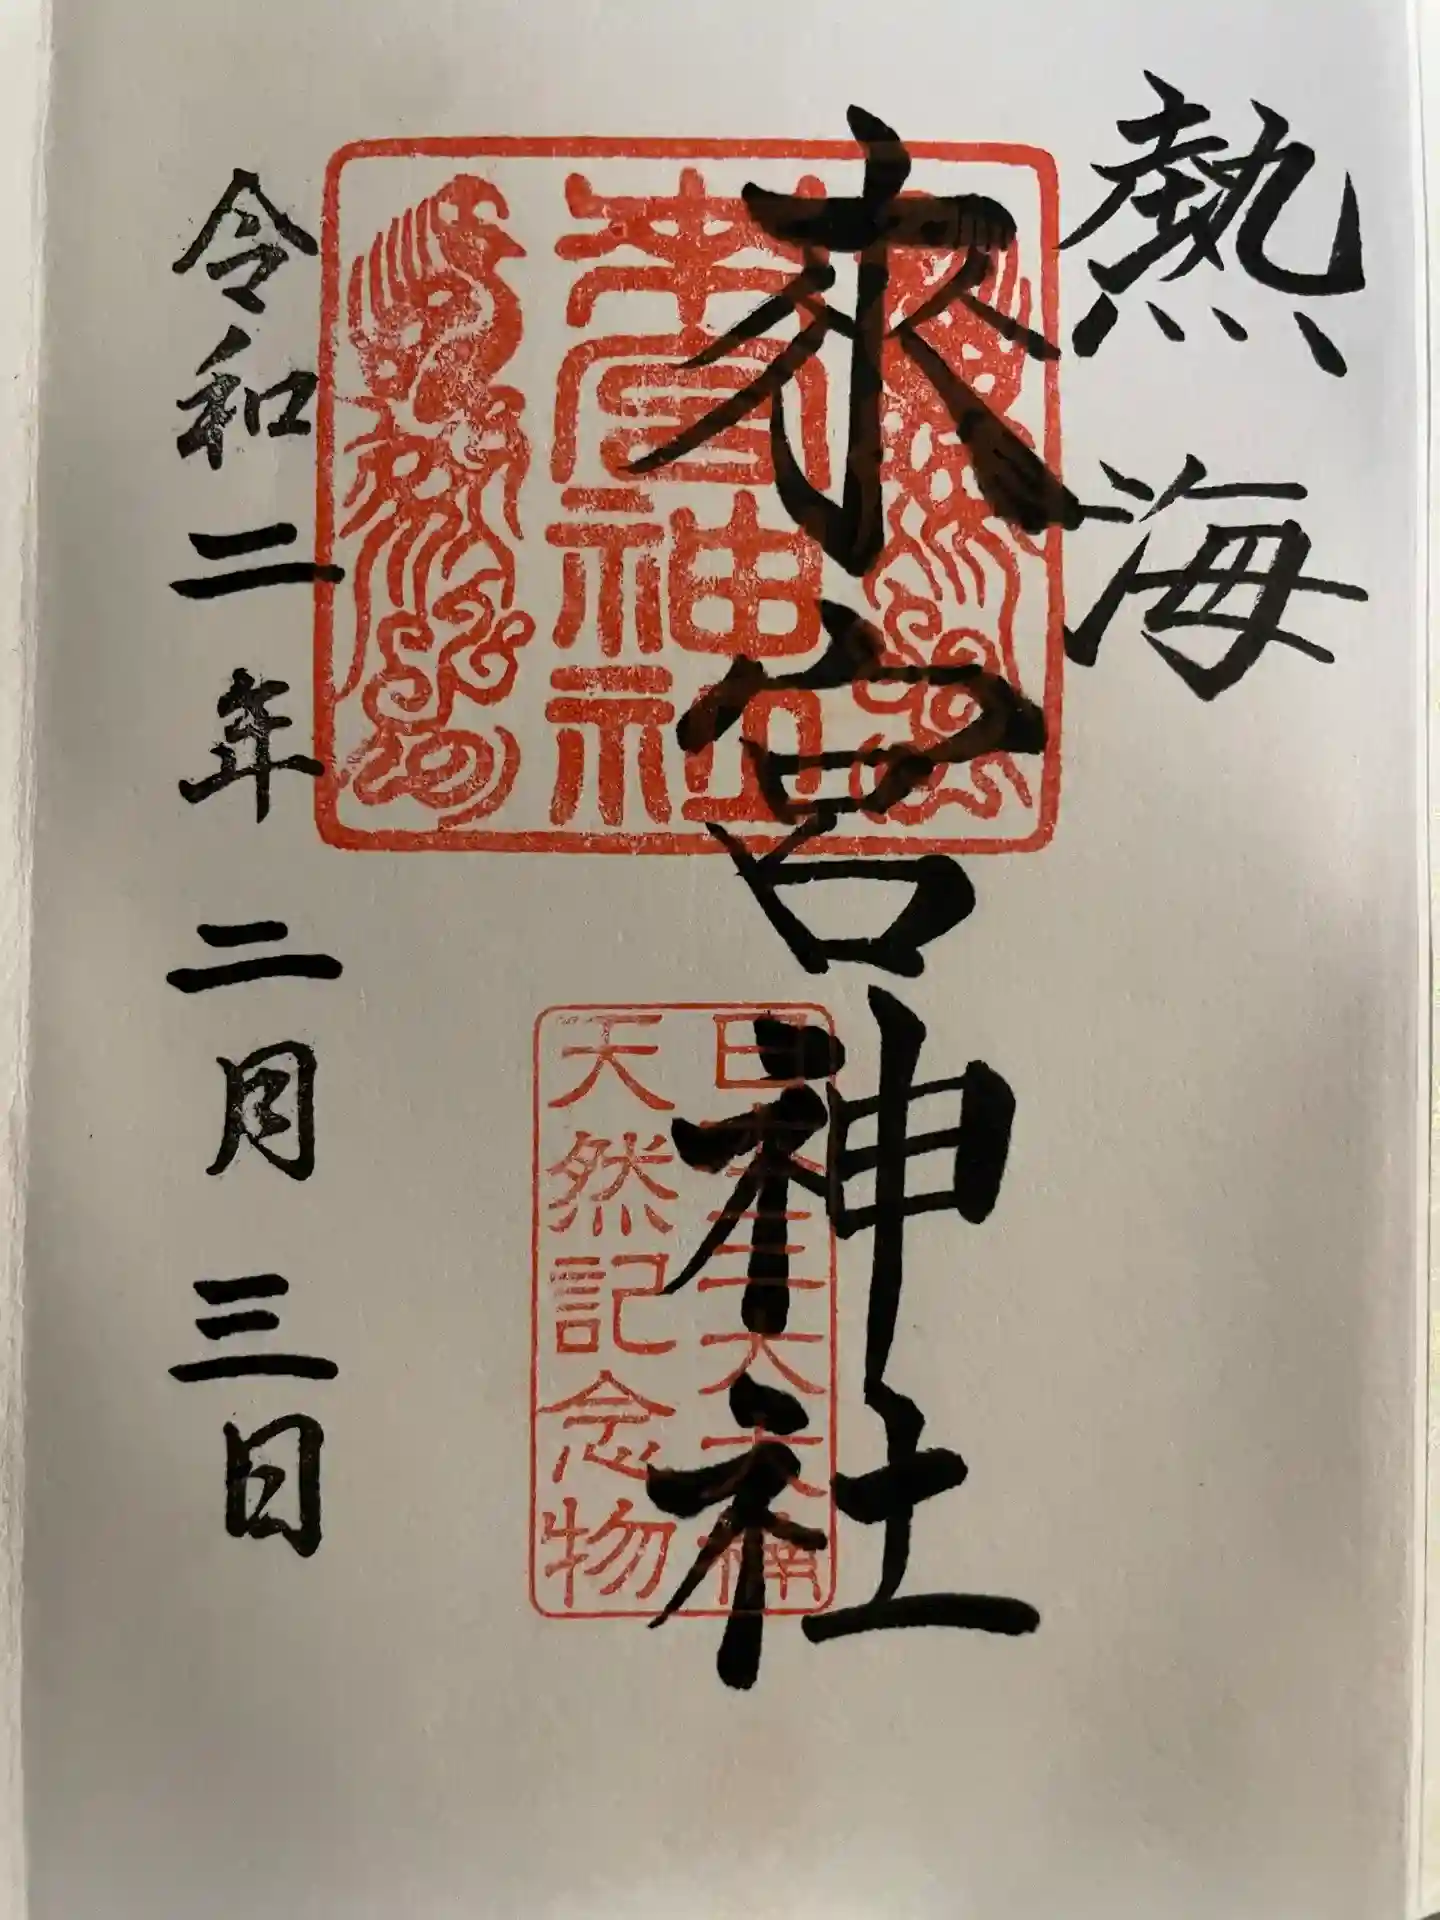 熱海
來宮神社
來宮神社
日本三大大楠
天然記念物
令和二年二月三日